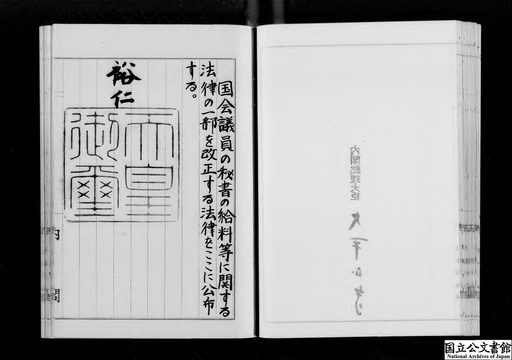 国会議員の秘書の給料等に関する
法律の一部を改正する法律をここに公布
する。
裕仁
天皇
御璽
内閣
内閣総理大臣
大平正芳
国立公文書館
National Archives of Japan